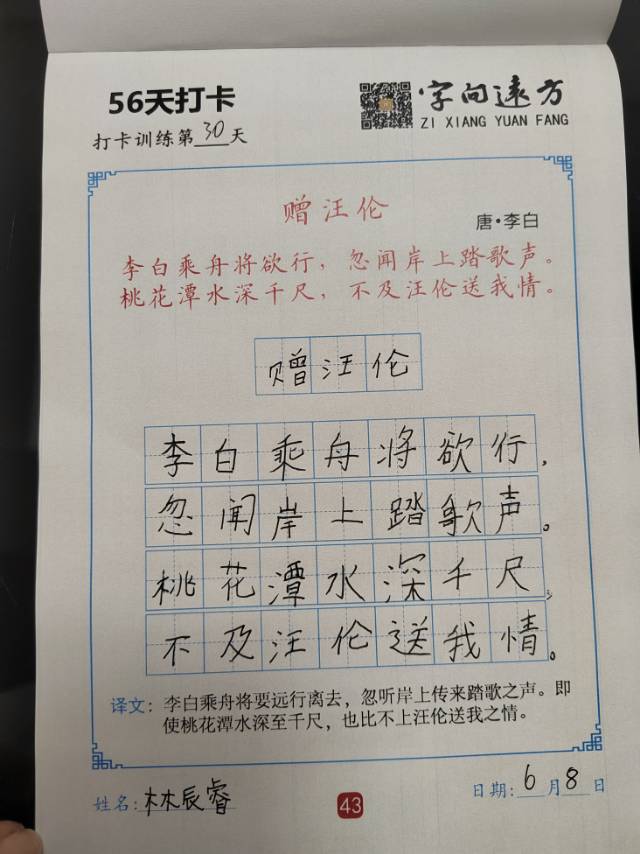 56天打卡
打卡训练第30天
字向远方
ZI XIANG YUAN FANG
赠汪伦
唐·李白
李白乘舟将欲行，忽闻岸上踏歌声。
桃花潭水深千尺，不及汪伦送我情。
赠汪伦
李白乘舟将欲行，
忽闻岸上踏歌声。
桃花潭水深千尺，
不及汪伦送我情。
译文：李白乘舟将要远行离去，忽听岸上传来踏歌之声。即
使桃花潭水深至千尺，也比不上汪伦送我之情。
姓名：林辰睿
43
日期：6月8日